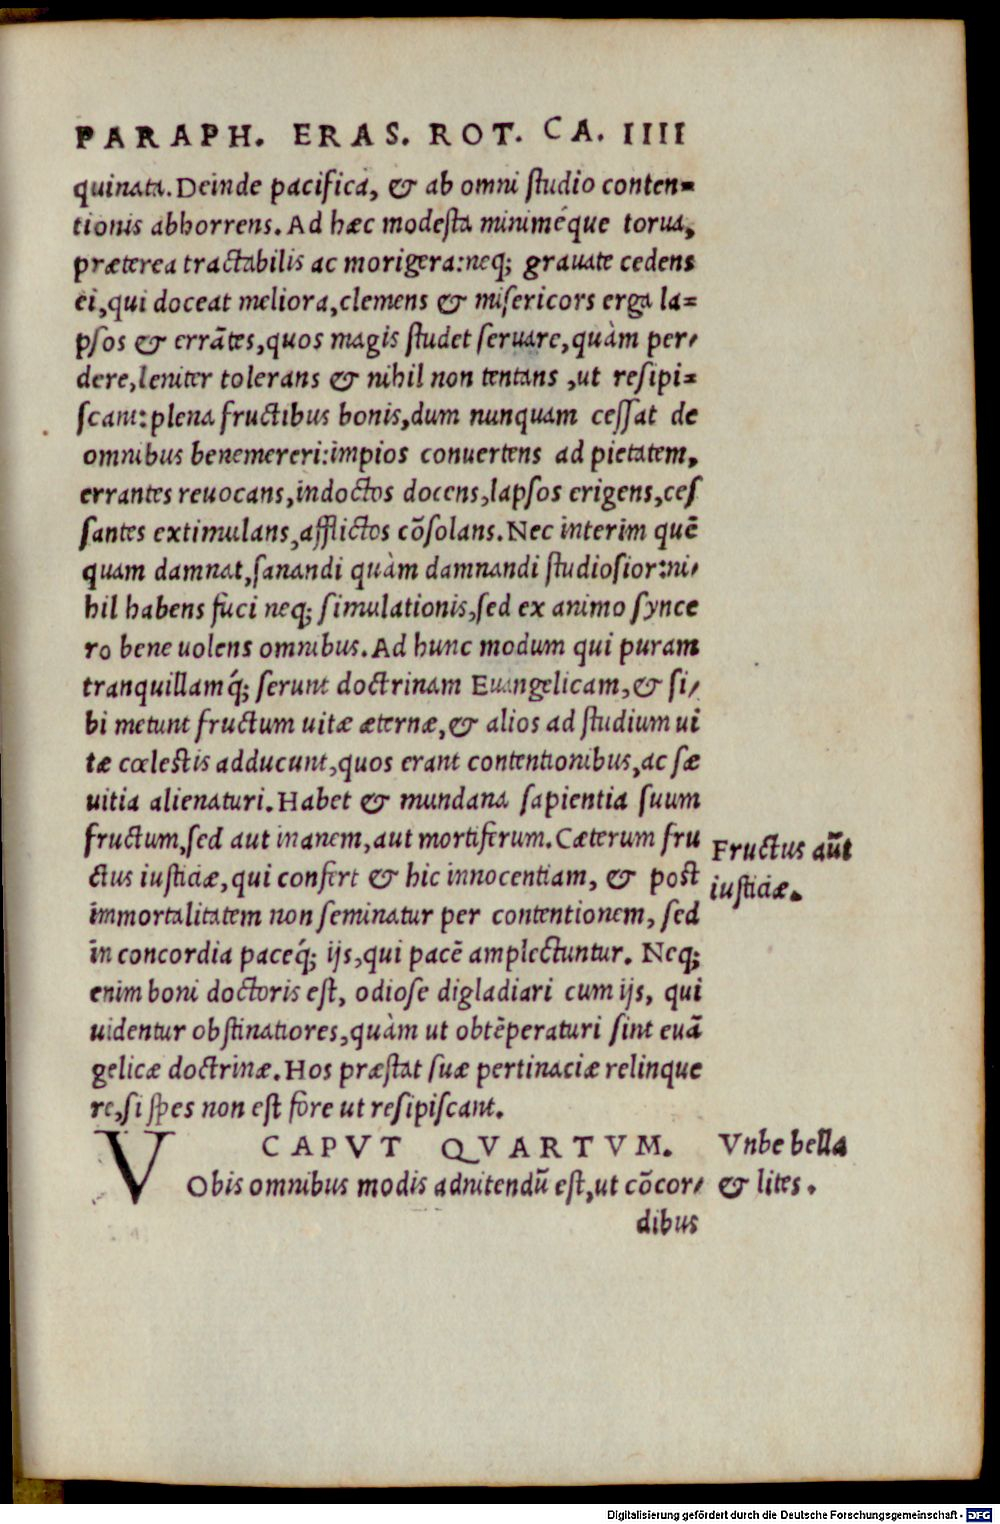 PARAPH. ERAS. ROT. CA. IIII
quinata. Deinde pacifica, & ab omni ſtudio conten=
tionis abhorrens. Ad hæc modeſta miniméque torua,
præterea tractabilis ac morigera: neq; grauate cedens
ei, qui doceat meliora, clemens & miſericors erga la=
pſos & errātes, quos magis ſtudet ſeruare, quàm per/
dere, leniter tolerans & nihil non tentans , ut reſipi=
ſcant: plena fructibus bonis, dum nunquam ceſſat de
omnibus benemereri: impios conuertens ad pietatem,
errantes reuocans, indoctos docens, lapſos erigens, ceſ
ſantes extimulans, afflictos cōſolans. Nec interim quē
quam damnat, ſanandi quàm damnandi ſtudioſior: ni/
hil habens fuci neq; ſimulationis, ſed ex animo ſynce
ro bene uolens omnibus. Ad hunc modum qui puram
tranquillamq́; ſerunt doctrinam Euangelicam, & ſi/
bi metunt fructum uitæ æternæ, & alios ad ſtudium ui
tæ cœleſtis adducunt, quos erant contentionibus, ac ſæ
uitia alienaturi. Habet & mundana ſapientia ſuum
fructum, ſed aut inanem, aut mortiferum. Cæterum fru
ctus iuſticiæ, qui confert & hic innocentiam, & poſt
immortalitatem non ſeminatur per contentionem, ſed
in concordia paceq́; ijs, qui pacē amplectuntur. Neq;
enim boni doctoris eſt, odioſe digladiari cum ijs, qui
uidentur obſtinatiores, quàm ut obtēperaturi ſint euā
gelicæ doctrinæ. Hos præſtat ſuæ pertinaciæ relinque
re, ſi ſpes non eſt fore ut reſipiſcant.
Fructus aūt
iuſticiæ.
CAPVT QVARTVM.
VObis omnibus modis adnitendū eſt, ut cōcor/
dibus
Vnbe bella
& lites.
Digitalisierung gefördert durch die Deutsche Forschungsgemeinschaft - DFG